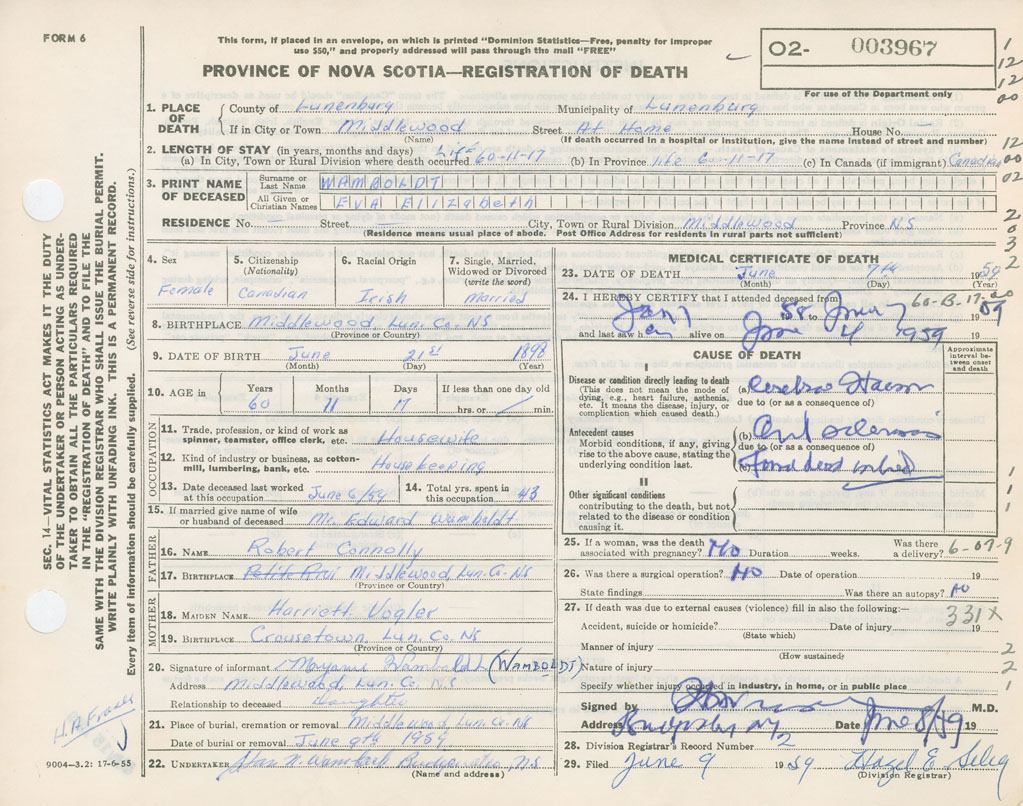 FORM 6
This form, if placed in an envelope, on which is printed "Dominion Statistics—Free, penalty for improper
use $50," and properly addressed will pass through the mail "FREE"
PROVINCE OF NOVA SCOTIA—REGISTRATION OF DEATH
O2- 003967
For use of the Department only
1
12
12
00
12
00
02
2
0
3
2
SEC. 14—VITAL STATISTICS ACT MAKES IT THE DUTY
OF THE UNDERTAKER OR PERSON ACTING AS UNDER-
TAKER TO OBTAIN ALL THE PARTICULARS REQUIRED
IN THE "REGISTRATION OF DEATH" AND TO FILE THE
SAME WITH THE DIVISION REGISTRAR WHO SHALL ISSUE THE BURIAL PERMIT.
WRITE PLAINLY WITH UNFADING INK. THIS IS A PERMANENT RECORD.
Every item of information should be carefully supplied. (See reverse side for instructions.)
1. PLACE OF DEATH
County of Lunenburg Municipality of Lunenburg
If in City or Town Middlewood Street At Home House No. —
(Name) (If death occurred in a hospital or institution, give the name instead of street and number)
2. LENGTH OF STAY (in years, months and days)
(a) In City, Town or Rural Division where death occurred Life 60-11-17 (b) In Province life 60-11-17 (c) In Canada (if immigrant) Canadian
3. PRINT NAME OF DECEASED
Surname or Last Name WAMBOLDT
All Given or Christian Names EVA Elizabeth
RESIDENCE No. — Street — City, Town or Rural Division Middlewood Province N.S
(Residence means usual place of abode. Post Office Address for residents in rural parts not sufficient)
4. Sex
Female
5. Citizenship
(Nationality)
Canadian
6. Racial Origin
Irish
7. Single, Married,
Widowed or Divorced
(write the word)
Married
8. BIRTHPLACE Middlewood, Lun. Co. NS
(Province or Country)
9. DATE OF BIRTH June 21st 1898
(Month) (Day) (Year)
10. AGE in
Years 60
Months 11
Days 17
If less than one day old
hrs. or / min.
OCCUPATION
11. Trade, profession, or kind of work as
spinner, teamster, office clerk, etc. Housewife
12. Kind of industry or business, as cotton-
mill, lumbering, bank, etc. House keeping
13. Date deceased last worked
at this occupation June 6/59
14. Total yrs. spent in
this occupation 43
15. If married give name of wife
or husband of deceased Mr. Edward Wamboldt
FATHER
16. NAME Robert Connolly
17. BIRTHPLACE Petite Rivi Middlewood, Lun. Co. NS
(Province or Country)
MOTHER
18. MAIDEN NAME Harriett Vogler
19. BIRTHPLACE Crousetown, Lun. Co. NS
(Province or Country)
20. Signature of informant Wamboldt (WAMBOLDT)
Address Middlewood, Lun. Co. N.S
Relationship to deceased Daughter
21. Place of burial, cremation or removal Middlewood, Lun. Co. NS
Date of burial or removal June 9th 1959
22. UNDERTAKER NS
(Name and address)
H. A. Fraser
9004—3.2: 17-6-55
MEDICAL CERTIFICATE OF DEATH
23. DATE OF DEATH June 7th 1959
(Month) (Day) (Year)
24. I HEREBY CERTIFY that I attended deceased from
Jan 58 to June 7 1959
and last saw her alive on June 4 1959
CAUSE OF DEATH
Approximate
interval be-
tween onset
and death
I
Disease or condition directly leading to death
(This does not mean the mode of
dying, e.g., heart failure, asthenia,
etc. It means the disease, injury, or
complication which caused death.)
(a) Cerebral Haem
due to (or as a consequence of)
Antecedent causes
Morbid conditions, if any, giving
rise to the above cause, stating the
underlying condition last.
(b) sclerosis
due to (or as a consequence of)
(c) Found dead in bed
II
Other significant conditions
contributing to the death, but not
related to the disease or condition
causing it.
1
1
1
25. If a woman, was the death
associated with pregnancy? No Duration weeks.
Was there
a delivery? 6-07-9
26. Was there a surgical operation? No Date of operation 19
State findings Was there an autopsy? No
27. If death was due to external causes (violence) fill in also the following:—
331X
Accident, suicide or homicide? Date of injury 19
(State which)
Manner of injury 2
(How sustained)
Nature of injury 2
Specify whether injury occurred in industry, in home, or in public place 1
Signed by M.D.
Address Date June 8/59 19
28. Division Registrar's Record Number 2
29. Filed June 9 1959 Hazel E.
(Division Registrar)